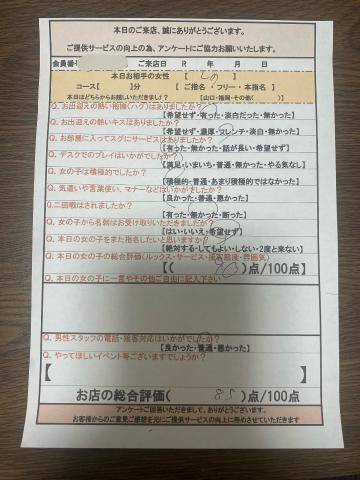 本日のご来店、誠にありがとうございます。
ご提供サービスの向上の為、アンケートにご協力お願いいたします。
会員番 ご来店日 R 年 月 日
本日お相手の女性 【 】
コース【 】分 【 ご指名 ・ フリー ・ 本指名 】
本日はどちらからお越しいただきましたか？ 【山口・福岡・その他( )】
Q. お出迎えの熱い抱擁(ハグ)はありましたか？
【希望せず・有った・淡白だった・無かった】
Q. お出迎えの熱いキスはありましたか？
【希望せず・濃厚・フレンチ・淡白・無かった】
Q. お部屋に入ってスグにサービスはありましたか？
【有った・無かった・話が長い・希望せず】
Q. デスクでのプレイはいかがでしたか？
【満足・いまいち・普通・無かった・やる気なし】
Q. 女の子は積極的でしたか？
【積極的・普通・あまり積極的ではなかった】
Q. 気遣いや言葉使い、マナーなどはいかがでしたか？
【良かった・普通・悪かった】
Q. 二回戦はされましたか？
【有った・無かった・断った】
Q. 女の子から名刺はお受け取りいただきましたか？
【はい・いいえ・希望せず】
Q. 本日の女の子をまた指名したいと思いますか？
【絶対する・してもよい・しない・2度と来ない】
Q. 本日の女の子の総合評価(ルックス・サービス・接客態度・雰囲気)
【( 90 )点/100点】
Q. 本日の女の子に一言やその他ご自由に記入下さい
Q. 男性スタッフの電話・接客対応はいかがでしたか？
【良かった・普通・悪かった】
Q. やってほしいイベント等ございますでしょうか？
【 】
お店の総合評価( 85 )点/100点
アンケートご回答いただきまして、ありがとうございます。
お客様からのご意見ご感想を元にご提供サービスの向上に務めさせていただきます